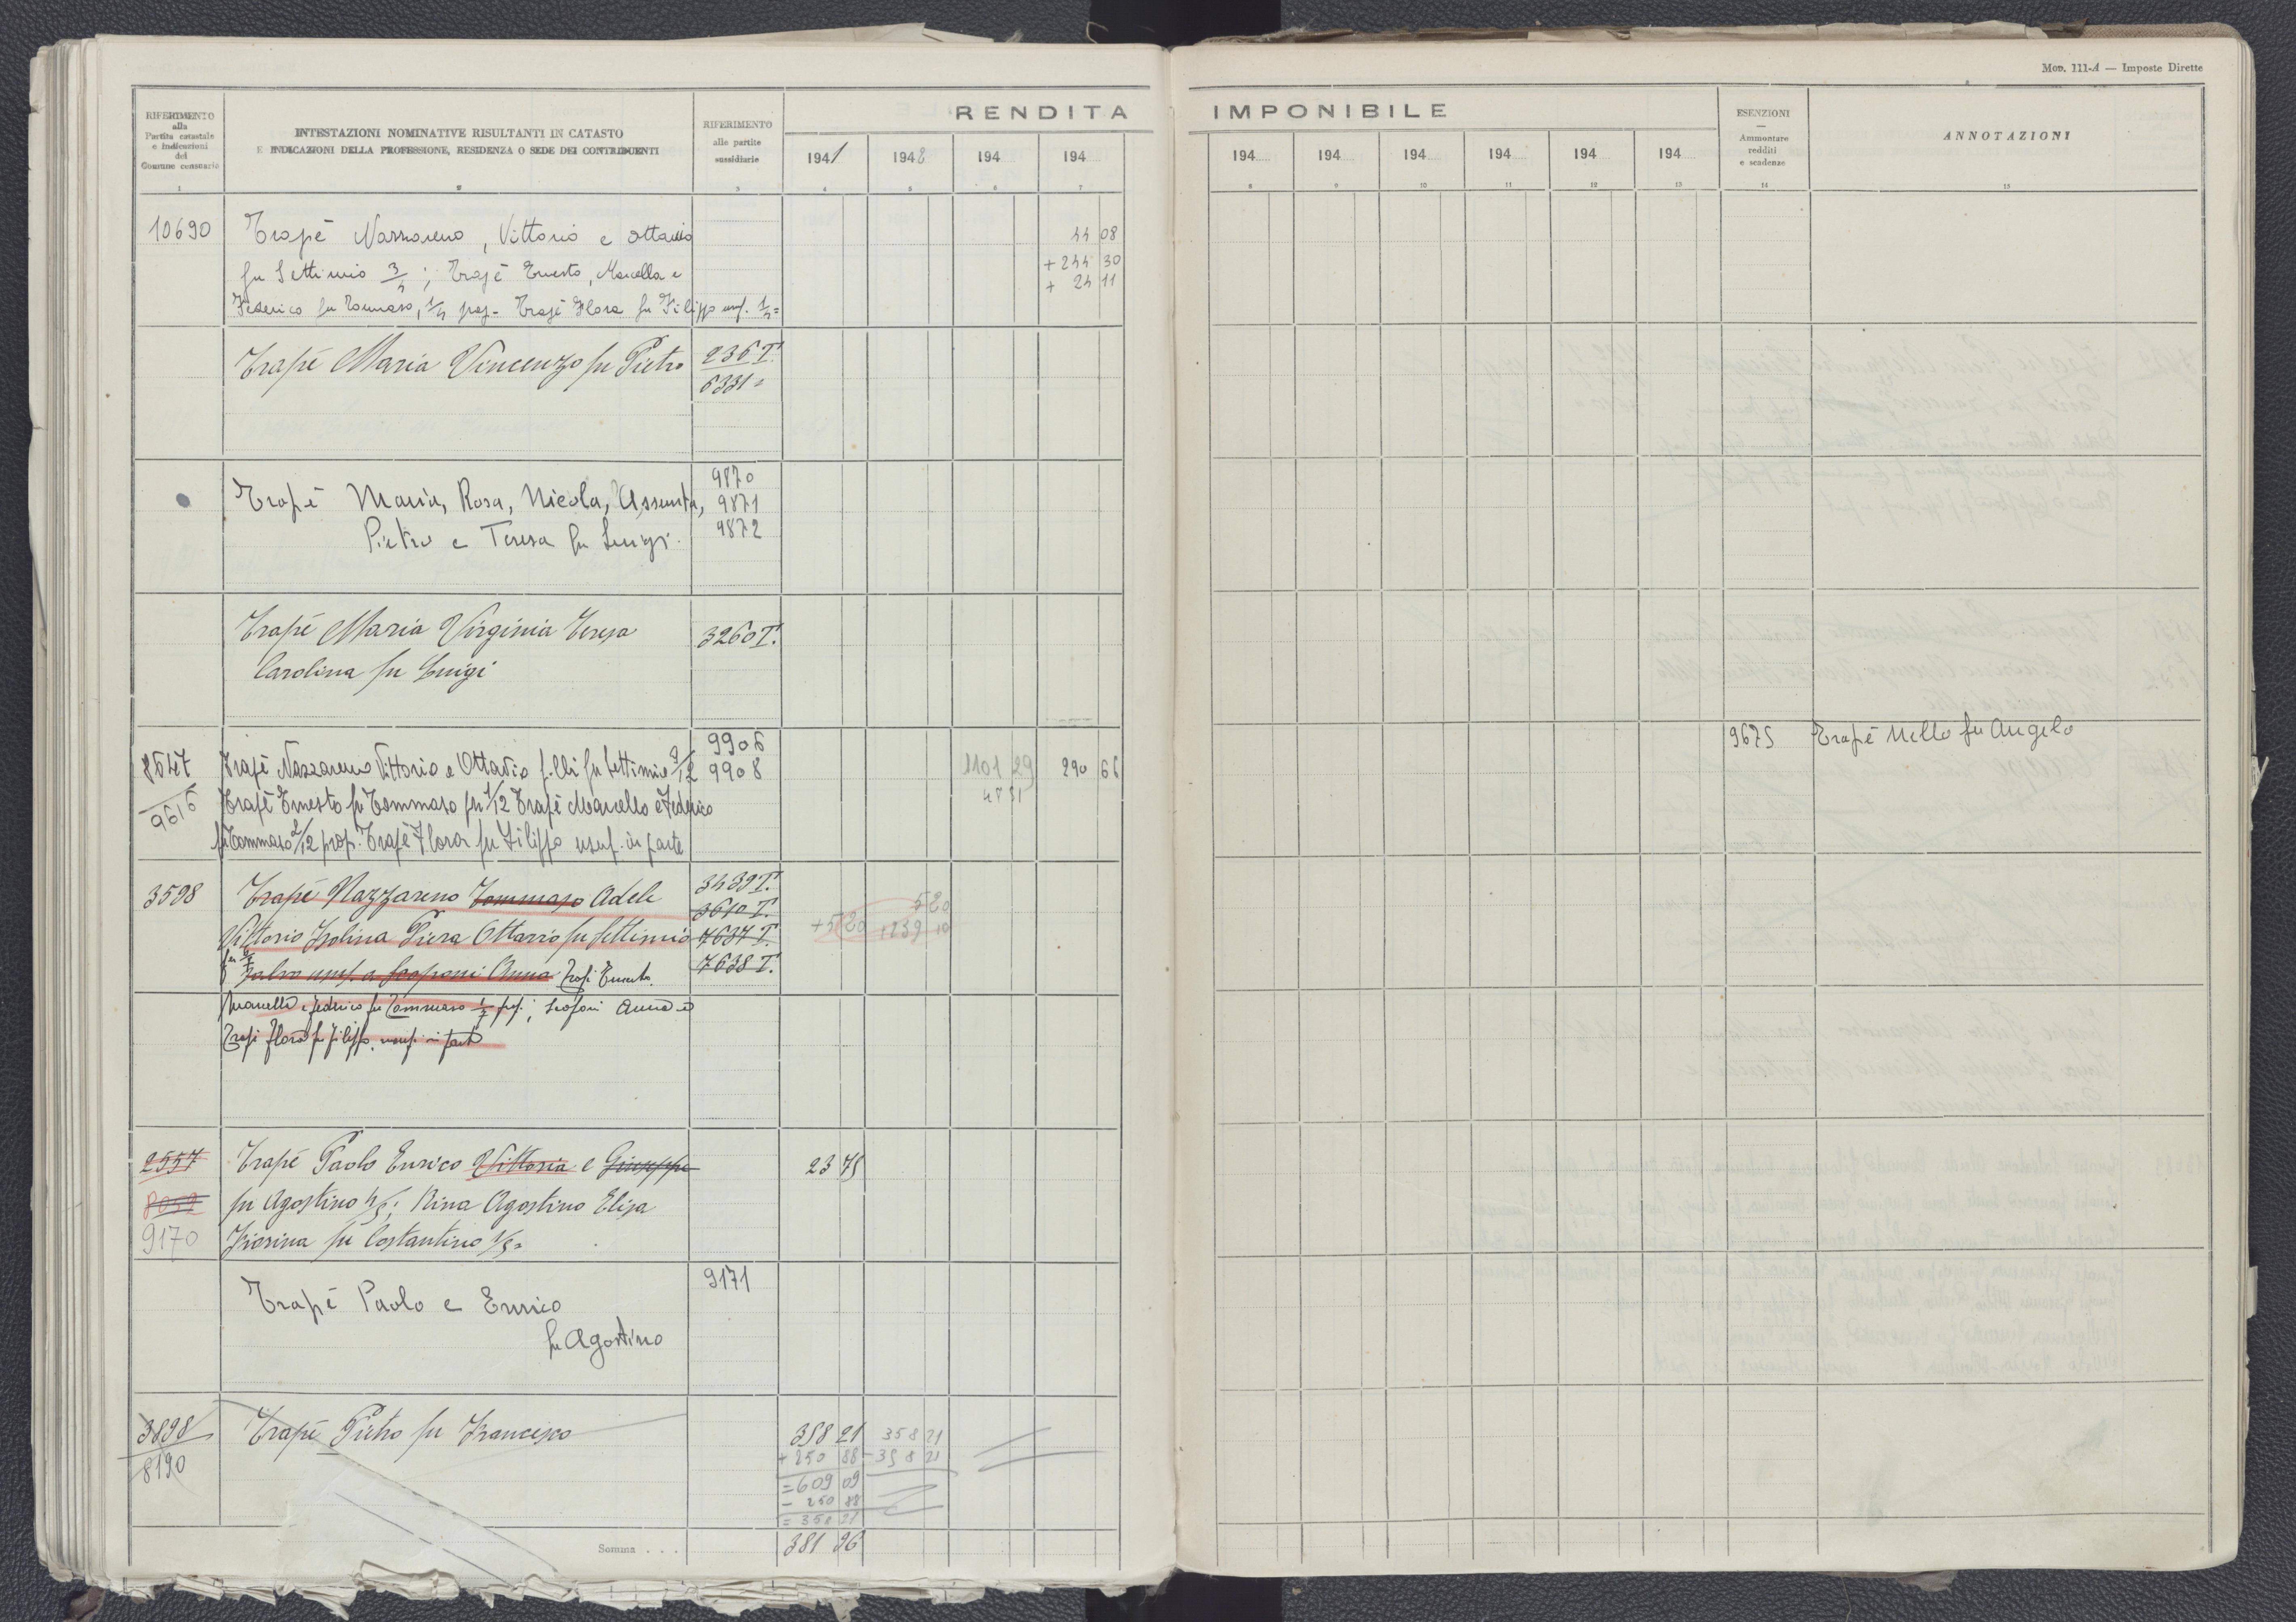 Mod. 111-A — Imposte Dirette
RIFERIMENTO
alla
Partita catastale
e indicazioni
del
Comune censuario
INTESTAZIONI NOMINATIVE RISULTANTI IN CATASTO
E INDICAZIONI DELLA PROFESSIONE, RESIDENZA O SEDE DEI CONTRIBUENTI
RIFERIMENTO
alle partite
sussidiarie
RENDITA IMPONIBILE
1941 1942 194 194 194 194 194 194 194 194
ESENZIONI
—
Ammontare
redditi
e scadenze
ANNOTAZIONI
1 2 3 4 5 6 7 8 9 10 11 12 13 14 15
10690 Trapè Nazzareno, Vittorio e Ottavio 44 08
fu Settimio 3/4; Trapè Ernesto, Marcella e + 244 30
+ 24 11
Federico fu Tommaso, 1/4 prop- Trapè Flora fu Filippo usuf. 1/4=
Trapè Maria Vincenzo fu Pietro 236 T.
6331=
9870
Trapè Maria, Rosa, Nicola, Assunta, 9871
Pietro e Teresa fu Luigi. 9872
Trapè Maria Virginia Teresa 3260 T.
Carolina fu Luigi
9906
8547 Trapè Nazzareno Vittorio e Ottavio f.lli fu Settimio 9/12 9908 1101 29 290 66
9616 Trapè Ernesto fu Tommaso per 1/12 Trapè Marcello e Federico
fu Tommaso 2/12 prop. Trapè Flora fu Filippo usuf. in parte
9675 Trapè Nello fu Angelo
3598 Trapè Nazzareno Tommaso Adele 3439 T.
3610 T. 520
Vittorio Isolina Piera Ottavio fu Settimio 7637 T. +5 20 1239 10
salvo usuf. a Scoponi Anna Trapè Ernesto 7638 T.
Marcello e Federico fu Tommaso prop; Scoponi Anna e
Trapè Flora fu Filippo usuf. in parte
2557 Trapè Paolo Enrico Vittoria e Giuseppe 23 75
8052 fu Agostino 4/5; Nina Agostino Elisa
9170 Fiorina fu Costantino 1/5=
9171
Trapè Paolo e Enrico
fu Agostino
3898 Trapè Pietro fu Francesco 358 21 358 21
8190 + 250 88 - 358 21
= 609 09
- 250 88
= 358 21
Somma . . . 381 96